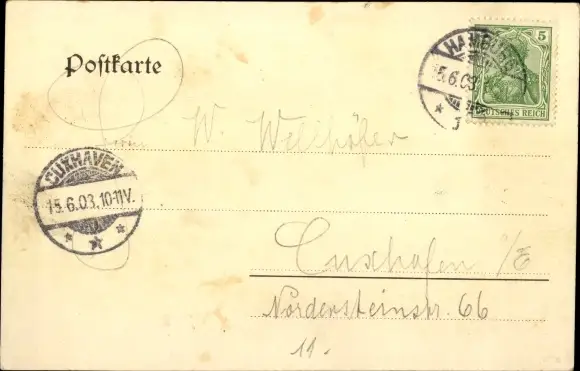 Postkarte
HAMBURG
15.6.03
5
DEUTSCHES REICH
W. Wellhöfer
CUXHAVEN
15.6.03.10-11V.
Cuxhafen %E
Nordersteinstr. 66
11.